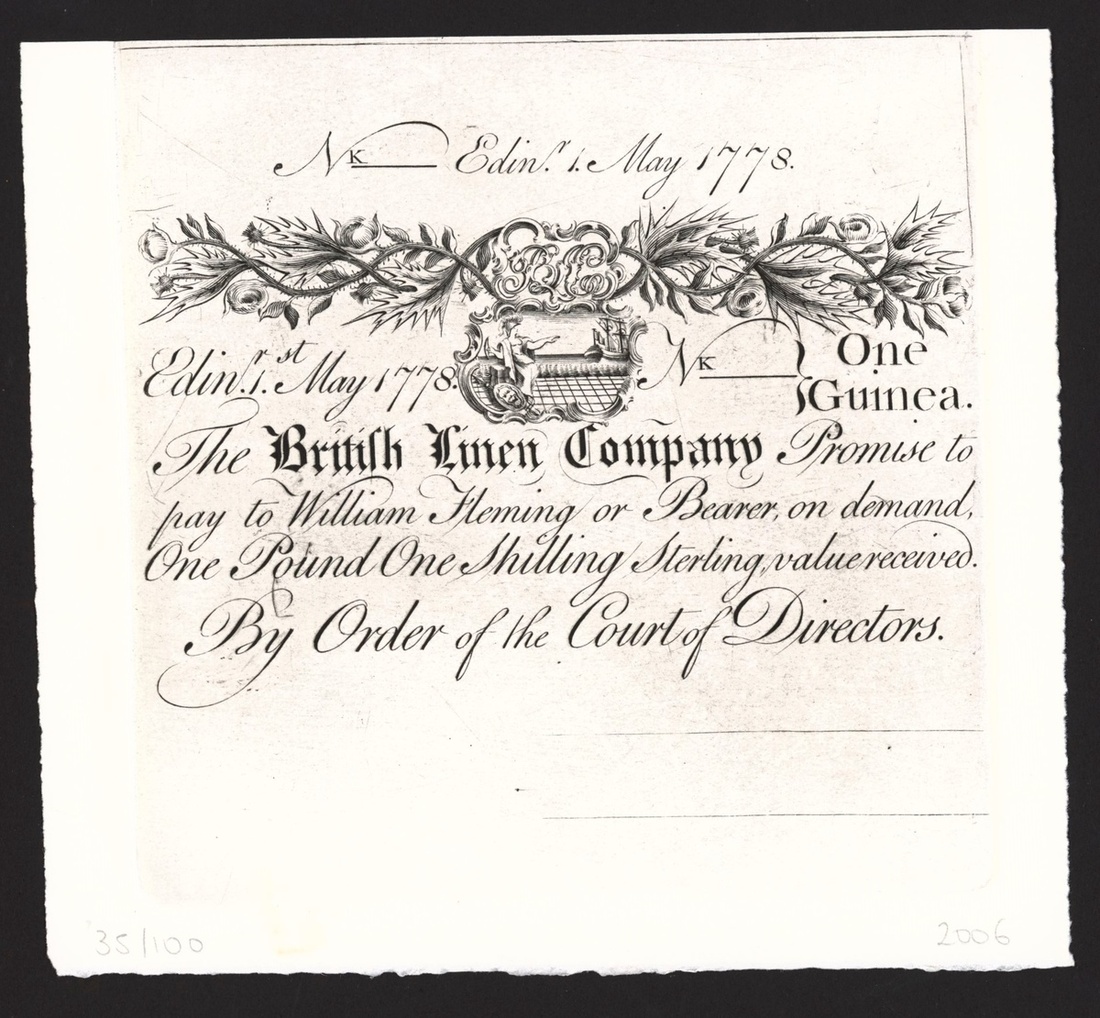 N K Edinr. 1. May 1778.
BLCo
Edinr. 1.st May 1778. N K One
Guinea.
The Britiſh Linen Company Promise to
pay to William Fleming or Bearer, on demand,
One Pound One Shilling Sterling, value received.
By Order of the Court of Directors.
35/100 2006